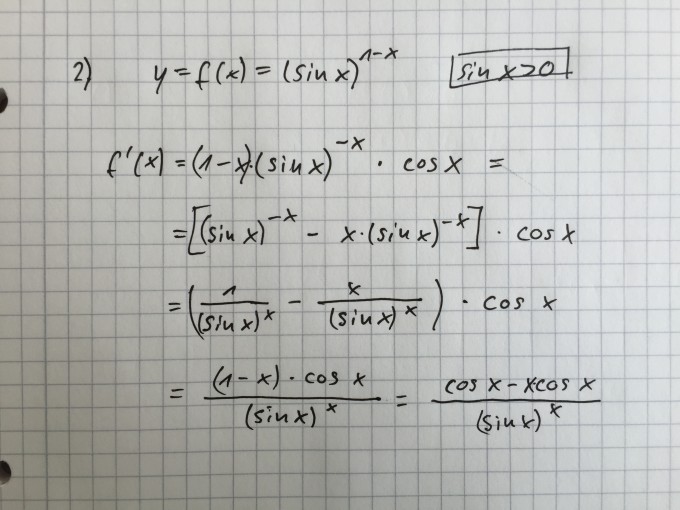 2) y = f(x) = (sin x)^{1-x} sin x > 0
f'(x) = (1-x)·(sin x)^{-x} · cos x =
= [(sin x)^{-x} - x·(sin x)^{-x}] · cos x
= (\frac{1}{(sin x)^x} - \frac{x}{(sin x)^x}) · cos x
= \frac{(1-x) · cos x}{(sin x)^x} = \frac{cos x - x cos x}{(sin x)^x}